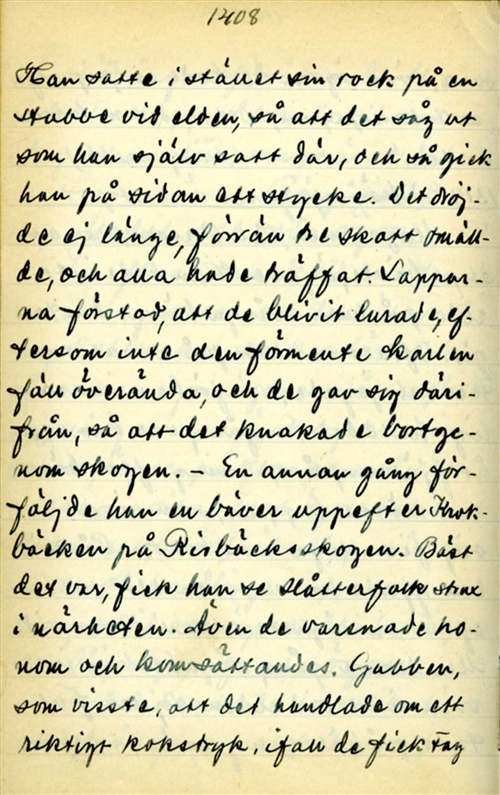 1408
Han satte i stället sin rock på en
stubbe vid elden, så att det såg ut
som han själv satt där, och så gick
han på sidan ett stycke. Det dröj-
de ej länge, förrän tre skott small-
de, och alla hade träffat. Lappar-
na förstod, att de blivit lurade, ef-
tersom inte den förmente karlen
föll överända, och de gav sig däri-
från, så att det knakade bortge-
nom skogen. – En annan gång för-
följde han en bäver uppefter Krok-
bäcken på Risbäcksskogen. Bäst
det var, fick han se slåtterfolk strax
i närheten. Även de varsnade ho-
nom och kom sättandes. Gubben,
som visste, att det handlade om ett
riktigt kokstryk, ifall de fick tag